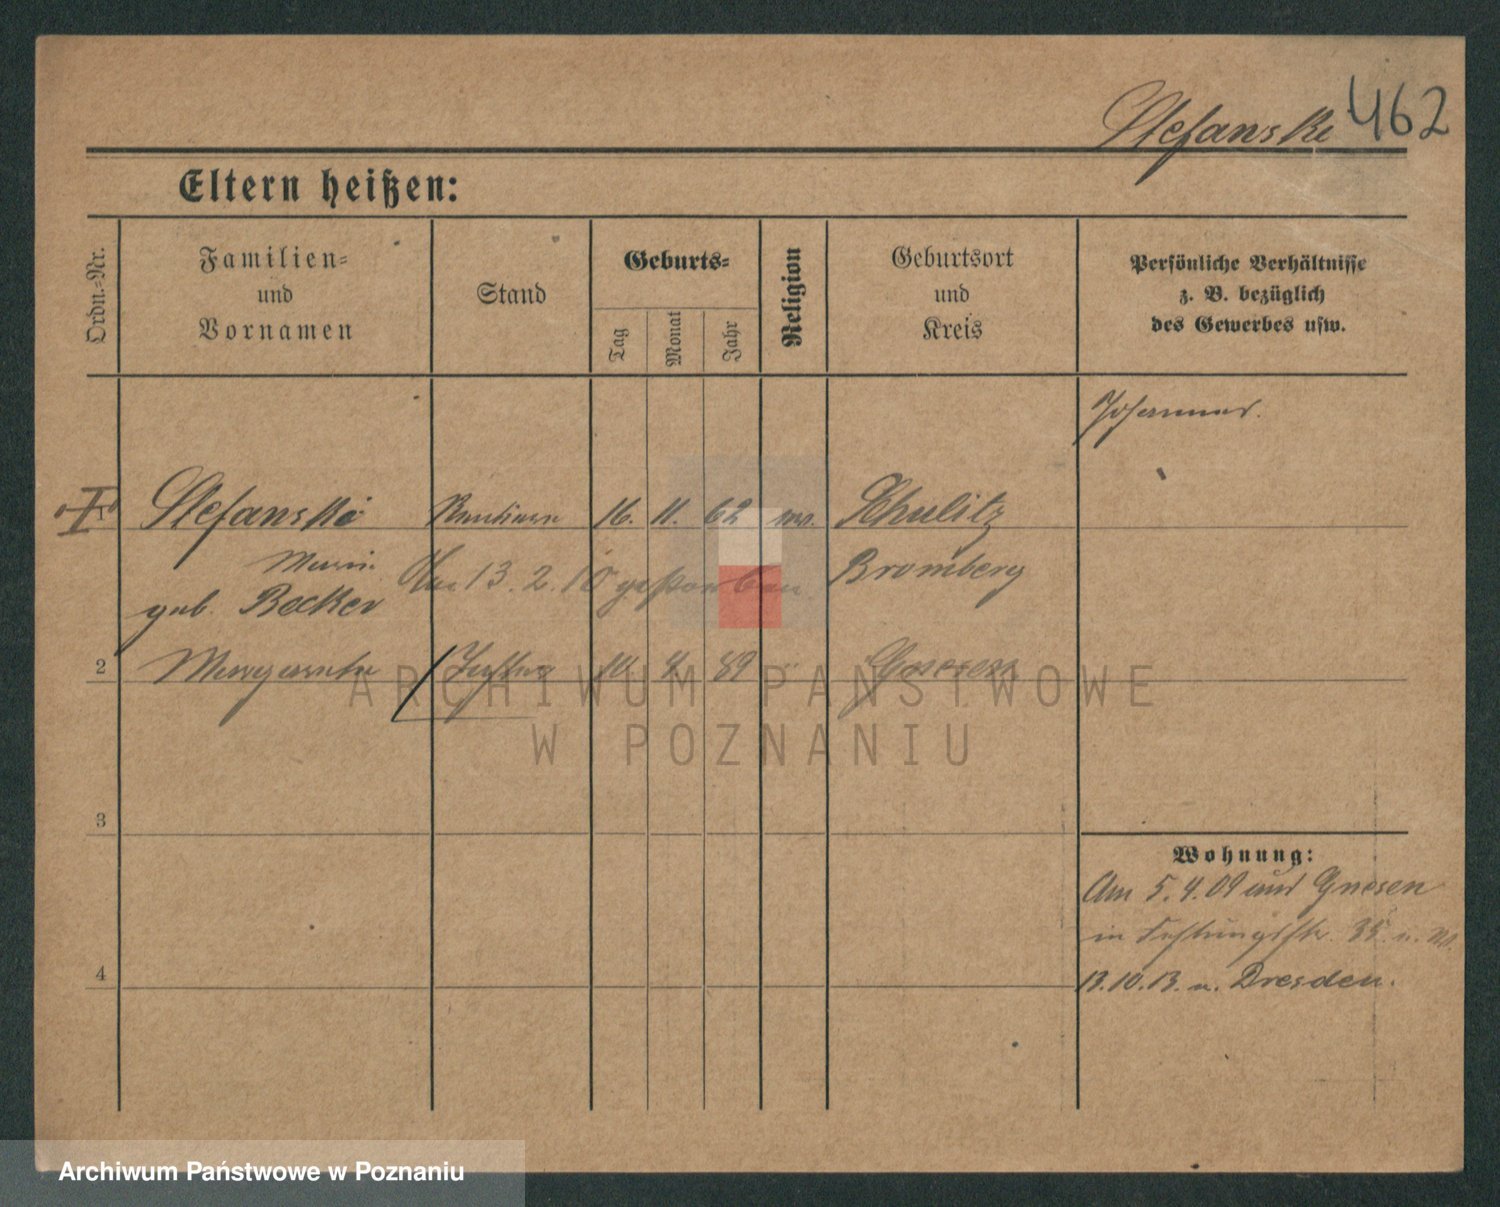 Stefanski 462
Eltern heißen:
Ordn.-Nr.
Familien-
und
Vornamen
Stand
Geburts-
Tag
Monat
Jahr
Religion
Geburtsort
und
Kreis
Persönliche Verhältnisse
z. B. bezüglich
des Gewerbes usw.
Johannes.
1 Stefanski 16. 11. 62 Schulitz
Maria Am 13. 2. 15 gestorben Bromberg
geb. Becker
2 Margarethe Tochter 10. 4. 89 Gnesen
3
4
Wohnung:
Am 5.4.09 aus Gnesen
in Festungsstr. 35
13.10.13. n. Dresden.
ARCHIWUM PAŃSTWOWE
W POZNANIU
Archiwum Państwowe w Poznaniu